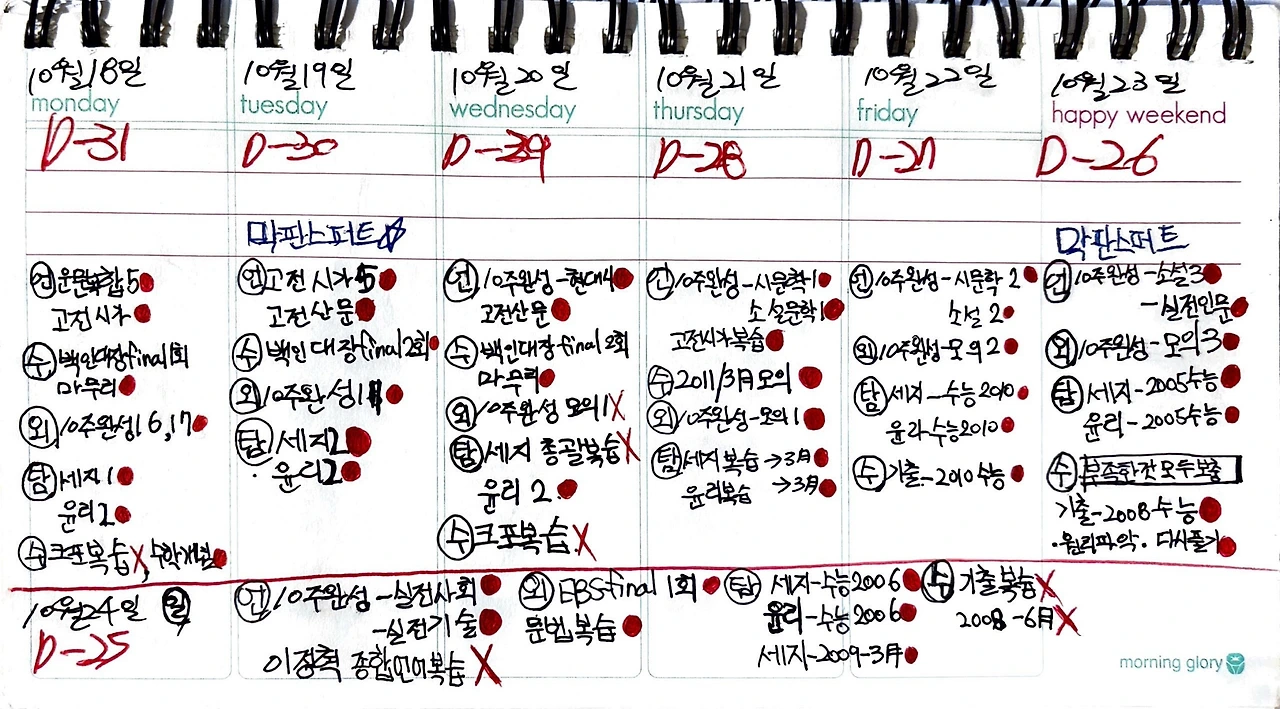 10월18일
monday
D-31
언 운문복합5
고전시가
수 백인대장final1회
마무리
외 10주완성16,17
탐 세지1
윤리2
수 크포복습X, 수학개념
10월19일
tuesday
D-30
막판스퍼트☆
언 고전시가5
고전산문
수 백인대장final2회
외 10주완성1
탐 세지2
윤리2
10월20일
wednesday
D-29
언 10주완성-현대4
고전산문
수 백인대장final2회
마무리
외 10주완성 모의1X
탐 세지 총괄복습X
윤리 2
수 크포복습X
10월21일
thursday
D-28
언 10주완성-시문학1
소설문학1
고전시가복습
수 2011/3月모의
외 10주완성-모의1
탐 세지복습→3月
윤리복습→3月
10월22일
friday
D-27
언 10주완성-시문학2
소설2
외 10주완성-모의2
탐 세지-수능2010
윤리-수능2010
수 기출-2010수능
10월23일
happy weekend
D-26
막판스퍼트
언 10주완성-소설3
-실전인문
외 10주완성-모의3
탐 세지-2005수능
윤리-2005수능
수 부족한것모두보충
기출-2008수능
·원리파악·다시풀기
10월24일 월
D-25
언 10주완성-실전사회
-실전기술
이정혁 종합언어복습X
외 EBSfinal 1회
문법복습
탐 세지-수능2006
윤리-수능2006
세지-2009-3月
수 기출복습X
2008-6月X
morning glory